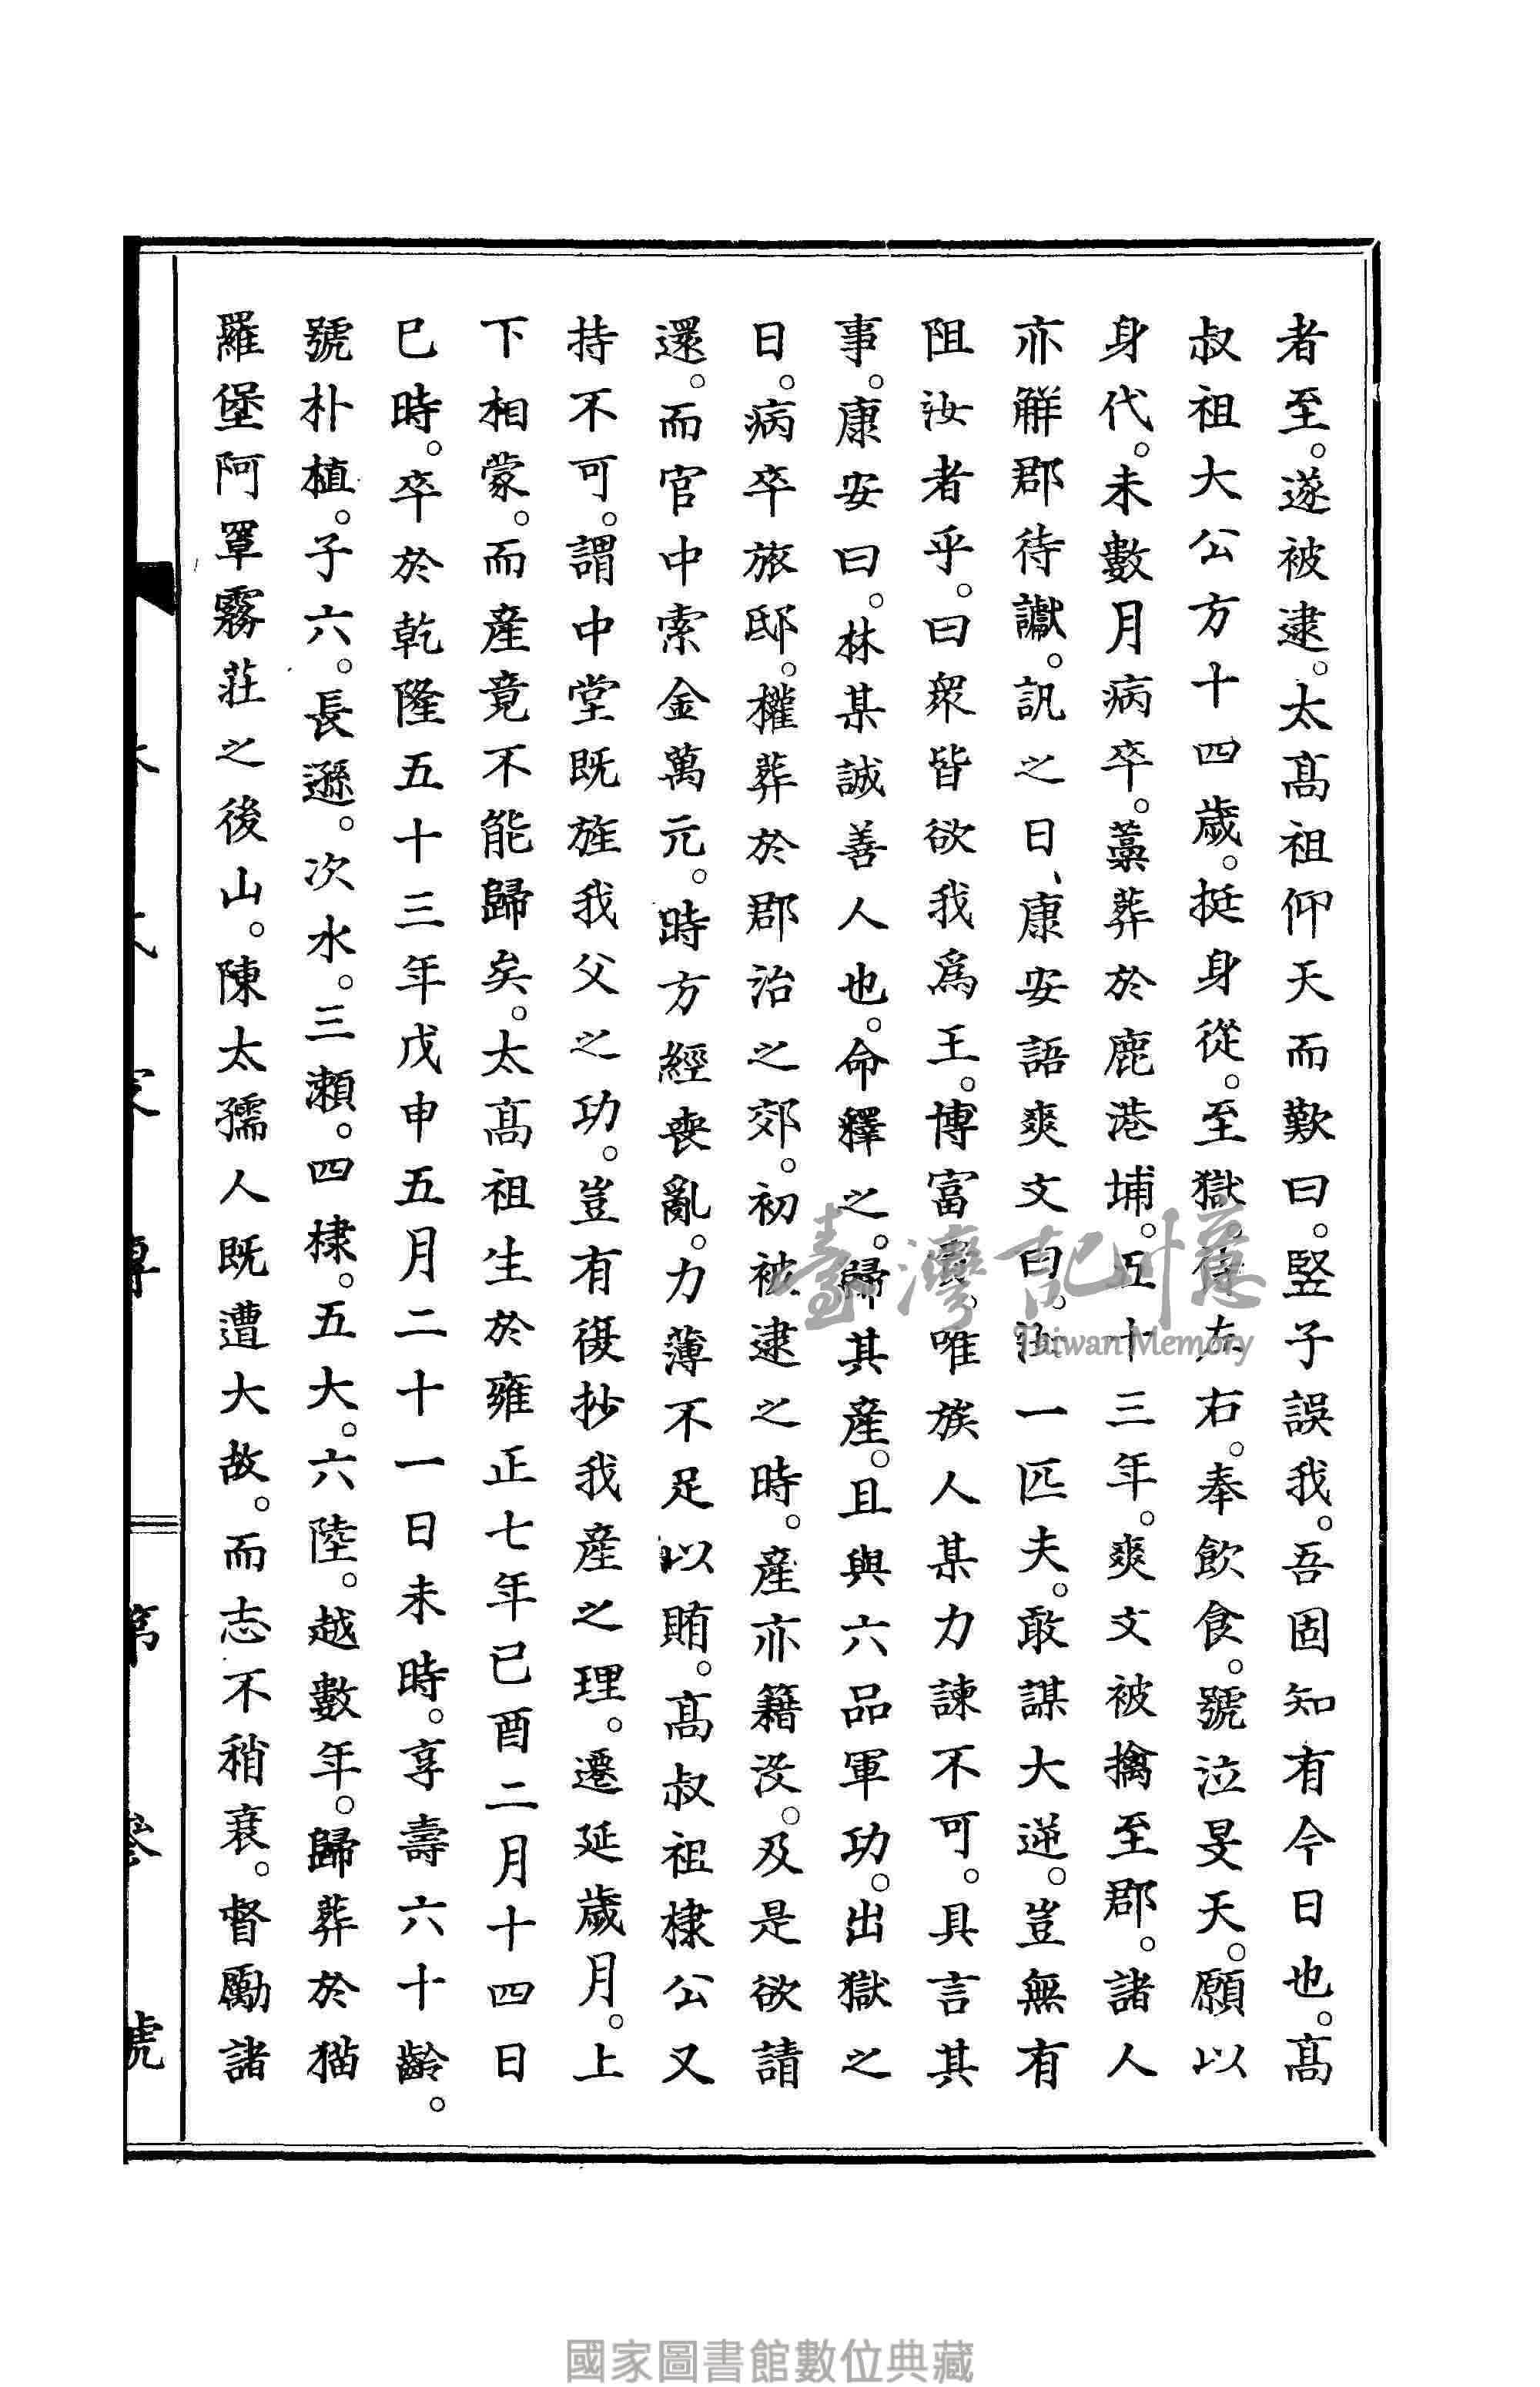 者至。遂被逮。太高祖仰天而歎曰。竪子誤我。吾固知有今日也。高
叔祖大公方十四歲。挺身從。至獄。侍左右。奉飲食。號泣旻天。願以
身代。未數月病卒。藁葬於鹿港埔。五十三年。爽文被擒至郡。諸人
亦解郡待讞。訊之日、康安語爽文曰。汝一匹夫。敢謀大逆。豈無有
阻汝者乎。曰衆皆欲我爲王。博富。唯族人某力諫不可。具言其
事。康安曰。林某誠善人也。命釋之。歸其産。且與六品軍功。出獄之
日。病卒旅邸。權葬於郡治之郊。初被逮之時。産亦籍沒。及是欲請
還。而官中索金萬元。時方經喪亂。力薄不足以賄。高叔祖棣公又
持不可。謂中堂既旌我父之功。豈有復抄我産之理。遷延歲月。上
下相蒙。而産竟不能歸矣。太高祖生於雍正七年己酉二月十四日
巳時。卒於乾隆五十三年戊申五月二十一日未時。享壽六十齡。
號朴植。子六。長遜。次水。三瀨。四棣。五大。六陸。越數年。歸葬於猫
羅堡阿罩霧莊之後山。陳太孺人既遭大故。而志不稍衰。督勵諸
臺灣記憶
Taiwan Memory
國家圖書館數位典藏